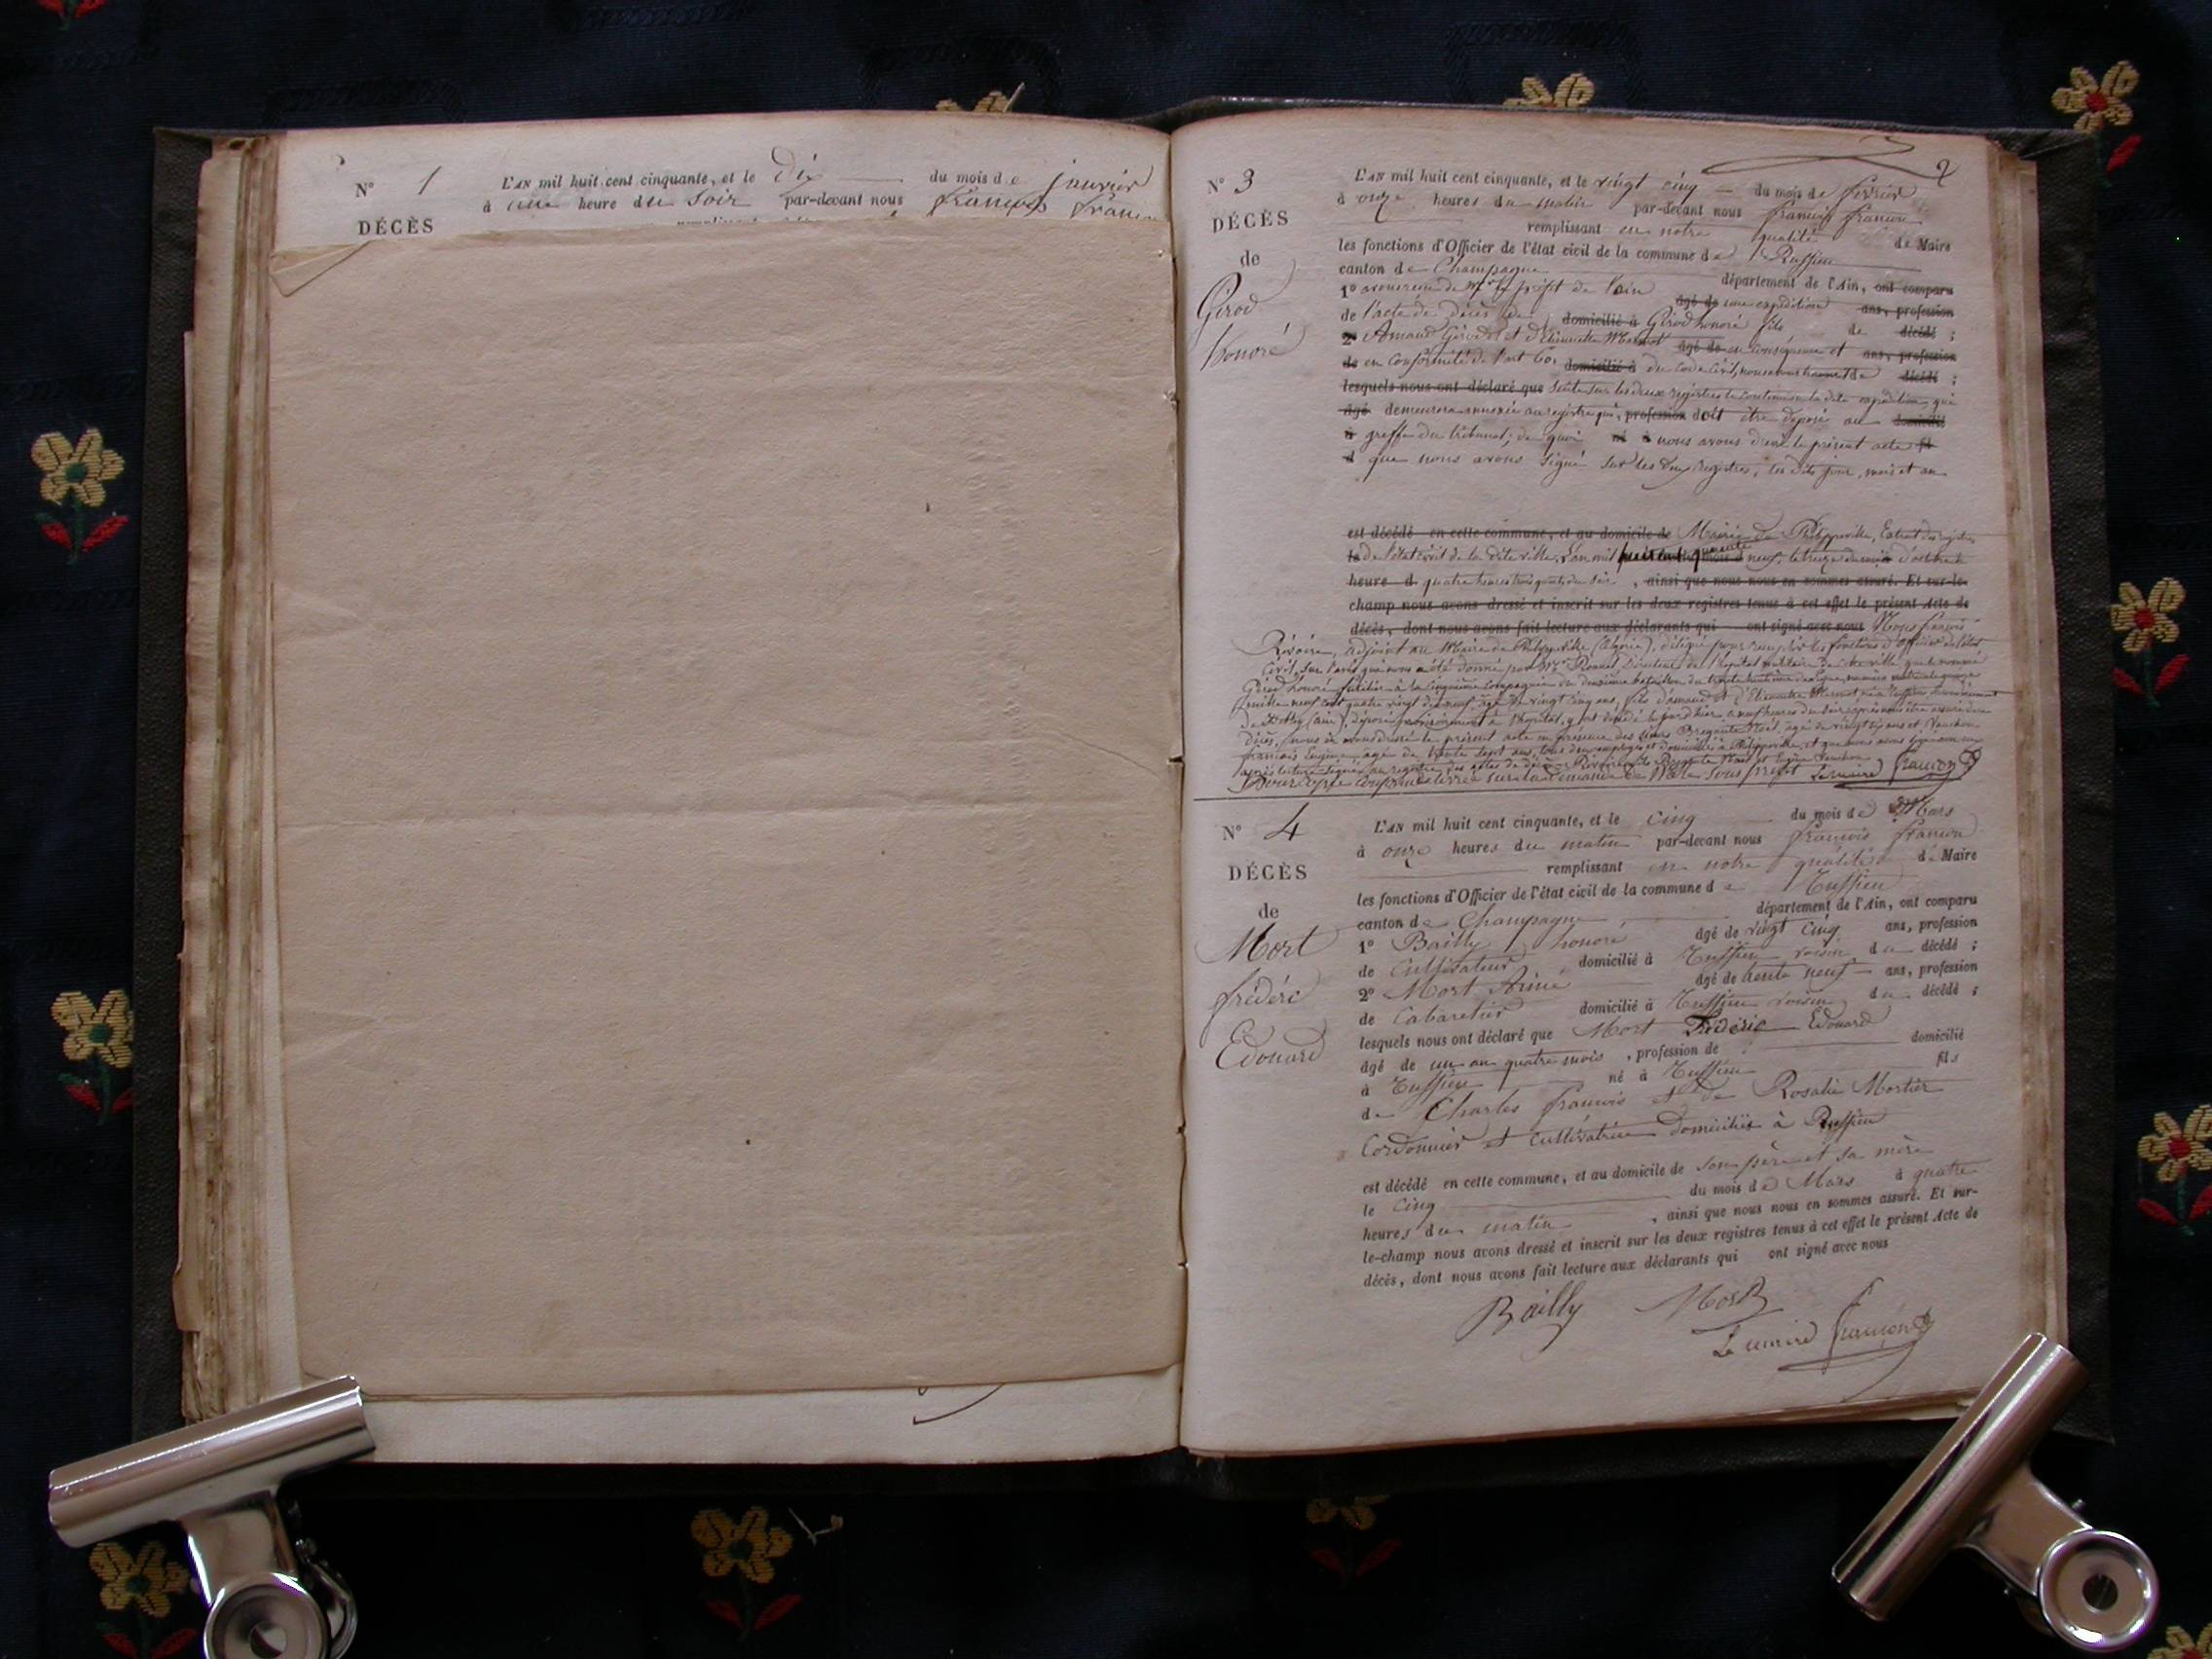 N° 1
L'AN mil huit cent cinquante, et le Dix du mois de janvier
à une heure du Soir par-devant nous François Francon
DÉCÈS
2
N° 3
L'AN mil huit cent cinquante, et le vingt cinq du mois de février
à onze heures du matin par-devant nous françois francon
DÉCÈS
remplissant en notre qualité de Maire
les fonctions d'Officier de l'état civil de la commune de Ruffieu
de
canton de Champagne département de l'Ain, ont comparu
Girod
1° de Mr le préfet de l'ain âgé de une expédition ans, profession
de l'acte de décès de domicilié à Girod honoré fils de décédé ;
honoré
2° Armand Girod et d'Etiennette âgé de en conséquence et ans, profession
de en conformité de l'art 60, domicilié à du Code Civil, nous décédé ;
lesquels nous ont déclaré que suite sur les deux registres le contenu en la dite expédition, qui
âgé demeurera annexée au registre qui, profession doit être déposé au domicilié
à greffe du tribunal; de quoi né à nous avons dressé le présent acte fil
d que nous avons signé sur les deux registres, les dits jour, mois et an
est décédé en cette commune, et au domicile de Mairie de Philippeville, Extrait des registres
le de l'état civil de la dite ville. L'an mil huit cent quarante neuf, le treize du mois d'octobre à
heure d quatre heures trois quarts du soir, ainsi que nous nous en sommes assuré. Et sur-le-
champ nous avons dressé et inscrit sur les deux registres tenus à cet effet le présent Acte de
décès, dont nous avons fait lecture aux déclarants qui ont signé avec nous Nous françois
adjoint au Maire de Philippeville (Algérie), délégué pour remplir les fonctions d'officier de l'état
Civil, sur l'avis qui nous a été donné par Mr Directeur de l'hôpital militaire de cette ville, que le nommé
Girod honoré fusilier à la cinquième compagnie du deuxième bataillon du
mille neuf cent quatre vingt dix neuf, âgé de vingt cinq ans, fils d'armand et d'Etiennette né à Ruffieu
de Belley (ain), hôpital, y est décédé le jour d'hier à neuf heures du soir
décès, nous en avons dressé le présent acte en présence des sieurs Noël, âgé de vingt six ans et
françois Eugène, âgé de trente sept ans, tous deux employés et domiciliés à Philippeville, et que nous avons signé
après lecture. Signé au registre des actes de décès
Pour copie conforme délivrée sur la demande de Mr le Sous préfet Le maire Francon
N° 4
L'AN mil huit cent cinquante, et le cinq du mois de Mars
à onze heures du matin par-devant nous françois francon
DÉCÈS
remplissant en notre qualité de Maire
les fonctions d'Officier de l'état civil de la commune de Ruffieu
de
canton de Champagne, département de l'Ain, ont comparu
Mort
1° Bailly honoré âgé de vingt cinq ans, profession
de Cultivateur domicilié à Ruffieu voisin du décédé ;
frédéric
2° Mort Aimé âgé de trente neuf ans, profession
de Cabaretier domicilié à Ruffieu voisin du décédé ;
Edouard
lesquels nous ont déclaré que Mort Frédéric Edouard
âgé de un an quatre mois, profession de domicilié
à Ruffieu né à Ruffieu fils
de Charles françois et de Rosalie Mortier
Cordonnier et cultivatrice domiciliés à Ruffieu
est décédé en cette commune, et au domicile de son père et sa mère
le cinq du mois de Mars à quatre
heures du matin, ainsi que nous nous en sommes assuré. Et sur-
le-champ nous avons dressé et inscrit sur les deux registres tenus à cet effet le présent Acte de
décès, dont nous avons fait lecture aux déclarants qui ont signé avec nous
Bailly Mort
Le maire Francon